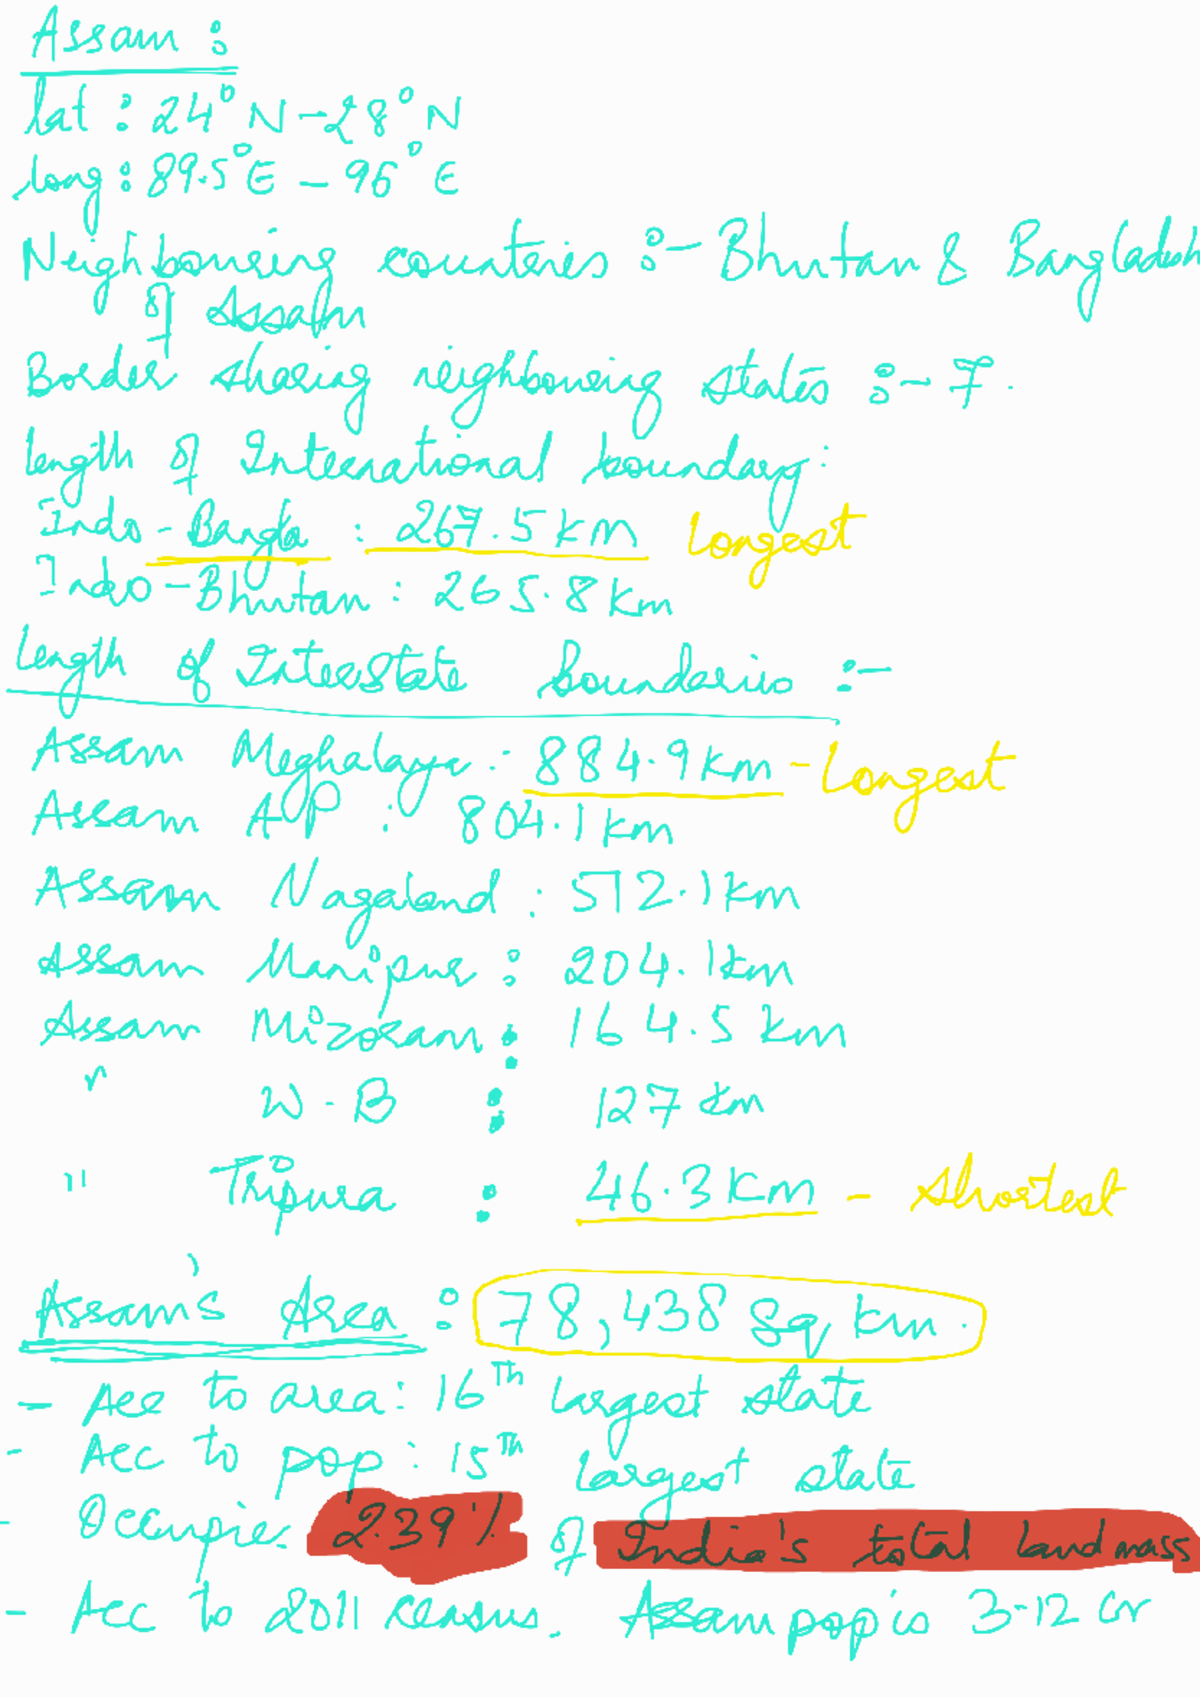 Assam :
lat : 24° N - 28° N
long : 89.5° E - 96° E
Neighbouring countries :- Bhutan & Bangladesh
of Assam
Border sharing neighbouring states :- 7.
length of International boundary :
Indo - Bangla : 267.5 KM Longest
Indo - Bhutan : 265.8 Km
Length of Interstate Boundaries :-
Assam Meghalaya : 884.9 Km - Longest
Assam A P : 804.1 Km
Assam Nagaland : 512.1 Km
Assam Manipur : 204.1 km
Assam Mizoram : 164.5 km
" W.B : 127 km
" Tripura : 46.3 Km - Shortest
Assam's Area : 78,438 Sq km.
- Acc to area : 16Th largest state
- Acc to pop : 15Th largest state
- Occupies 2.39% of India's total land mass
- Acc to 2011 census. Assam pop is 3.12 cr